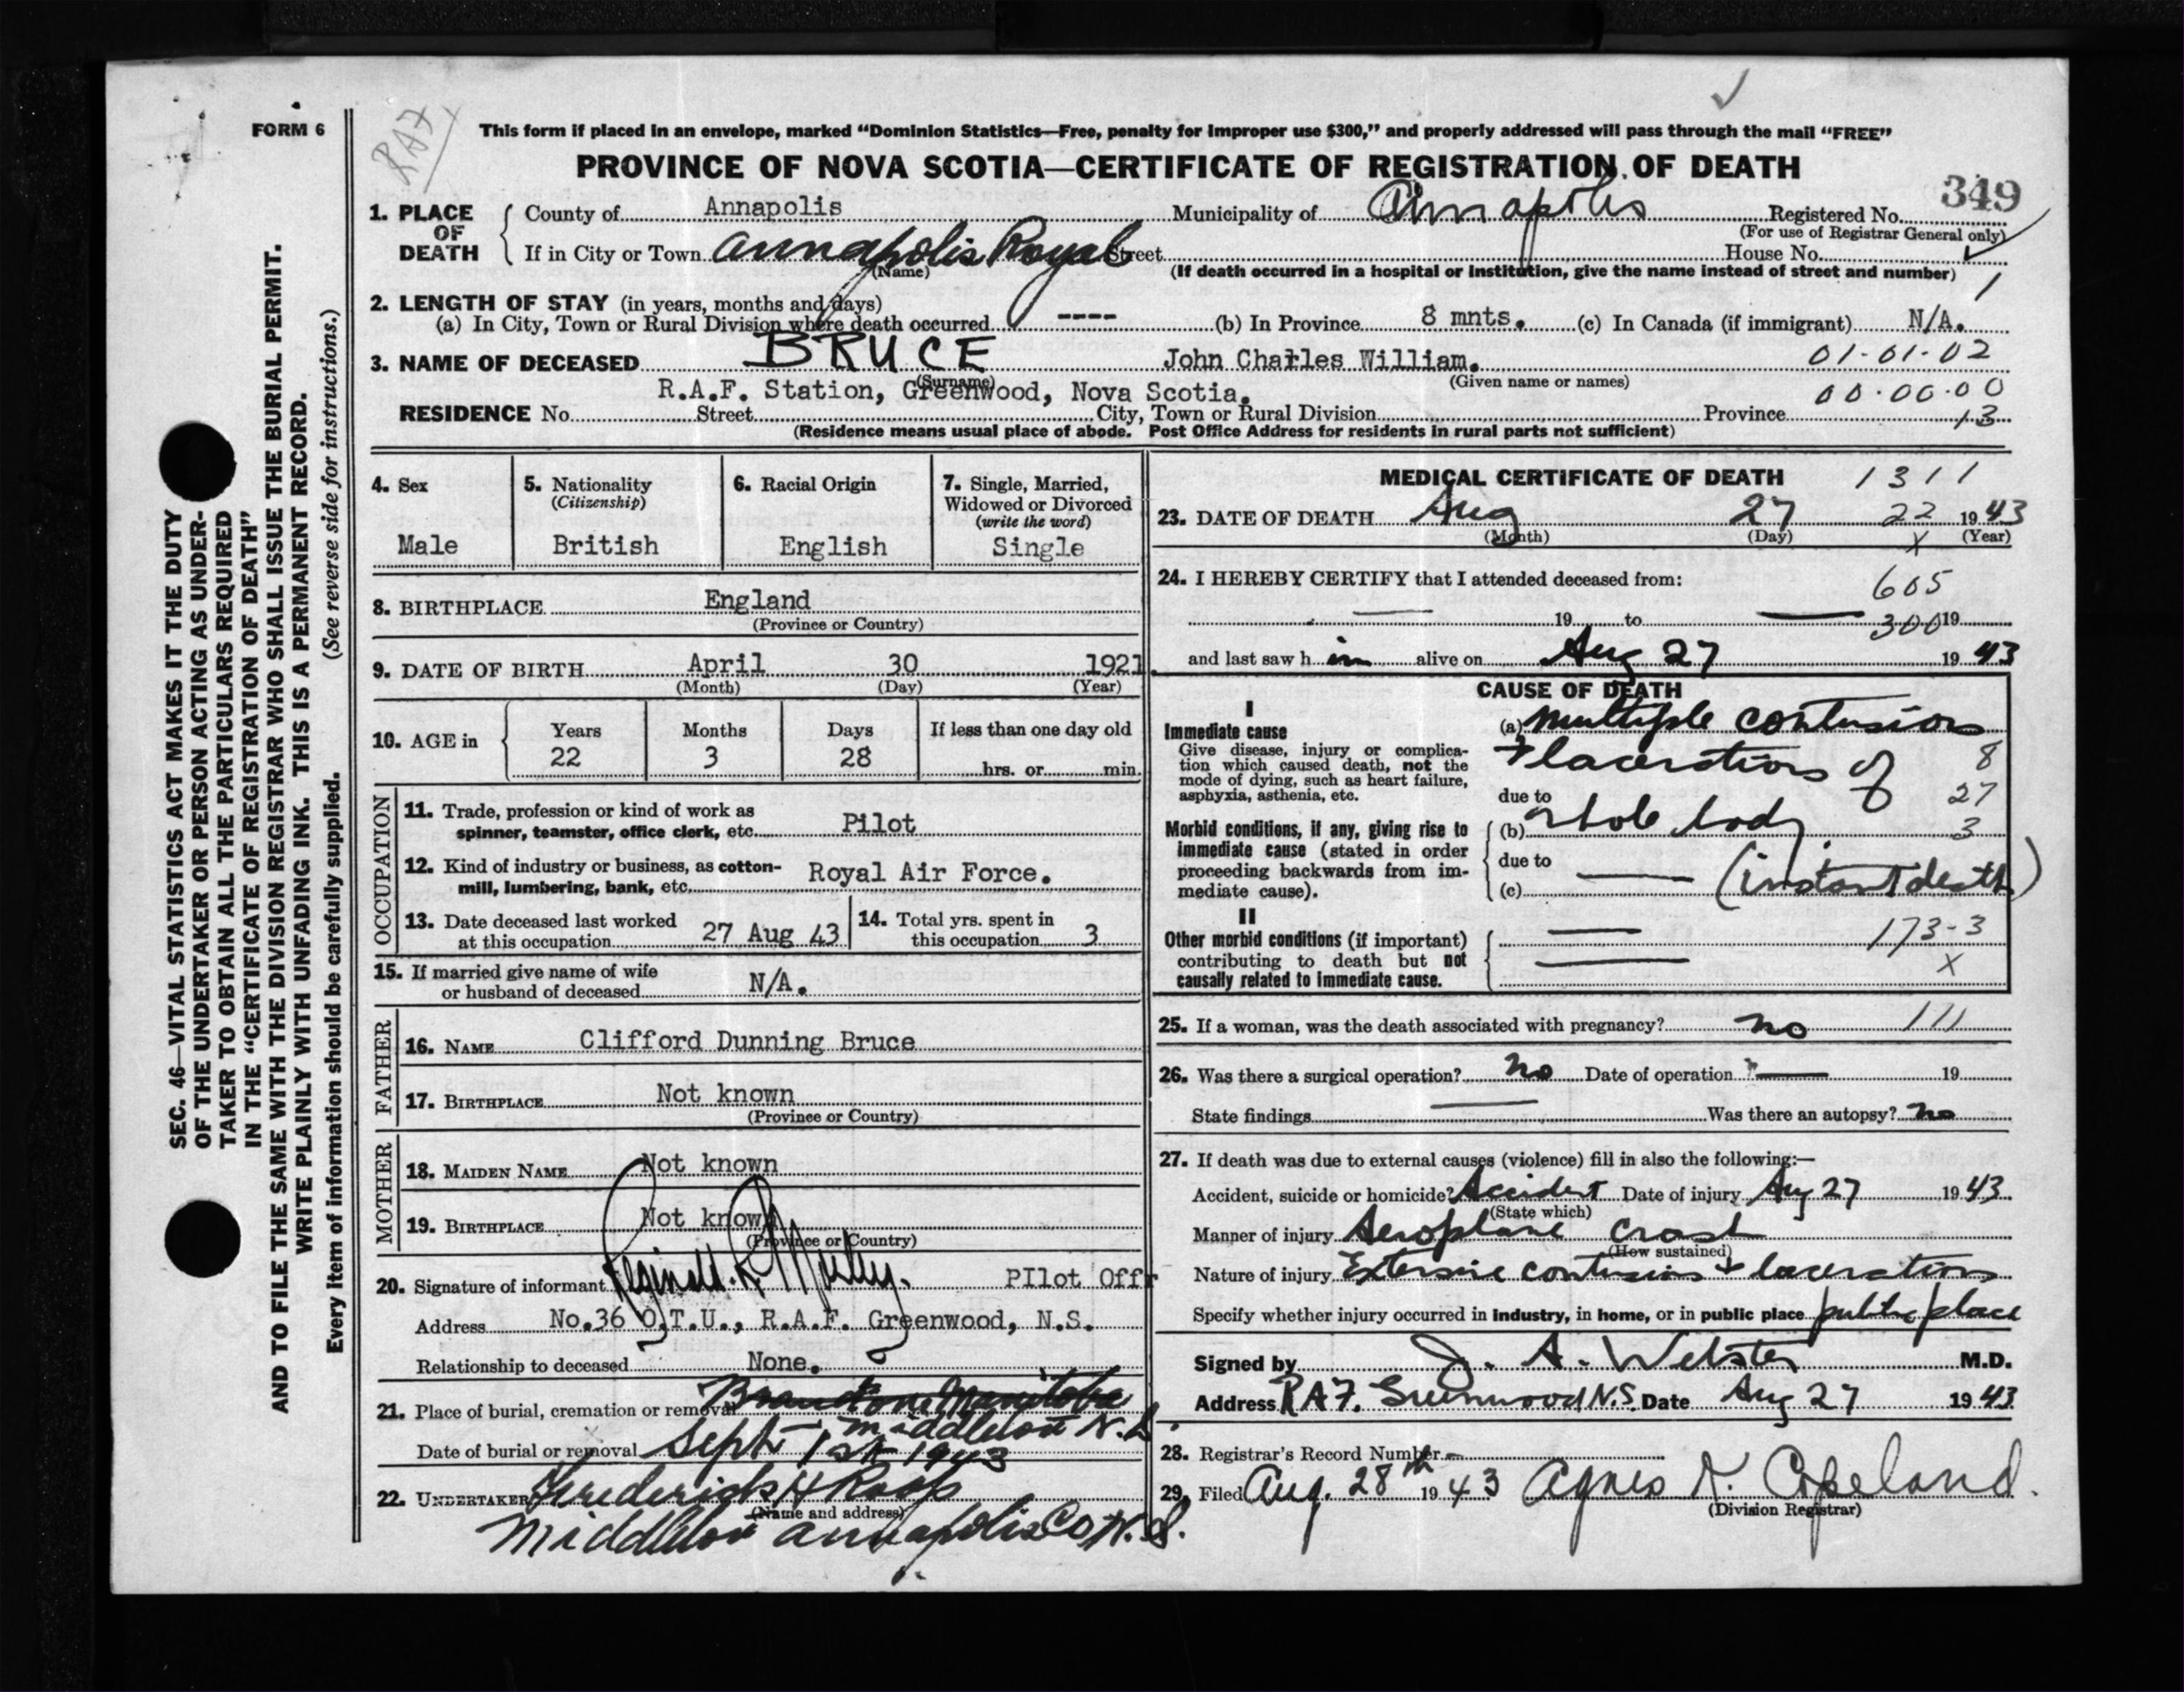 FORM 6
RAF
This form if placed in an envelope, marked “Dominion Statistics—Free, penalty for improper use $300,” and properly addressed will pass through the mail “FREE”
PROVINCE OF NOVA SCOTIA—CERTIFICATE OF REGISTRATION OF DEATH
349
1. PLACE OF DEATH County of Annapolis Municipality of Annapolis Registered No.
(For use of Registrar General only)
If in City or Town Annapolis Royal Street House No.
(Name) (If death occurred in a hospital or institution, give the name instead of street and number)
2. LENGTH OF STAY (in years, months and days)
(a) In City, Town or Rural Division where death occurred ---- (b) In Province 8 mnts. (c) In Canada (if immigrant) N/A.
3. NAME OF DECEASED BRUCE John Charles William. 01-01-02
(Surname) (Given name or names)
R.A.F. Station, Greenwood, Nova Scotia. 00-00-00
RESIDENCE No. Street City, Town or Rural Division Province 13
(Residence means usual place of abode. Post Office Address for residents in rural parts not sufficient)
4. Sex
Male
5. Nationality
(Citizenship)
British
6. Racial Origin
English
7. Single, Married,
Widowed or Divorced
(write the word)
Single
8. BIRTHPLACE England
(Province or Country)
9. DATE OF BIRTH April 30 1921.
(Month) (Day) (Year)
10. AGE in Years Months Days If less than one day old
22 3 28 hrs. or min.
OCCUPATION
11. Trade, profession or kind of work as
spinner, teamster, office clerk, etc. Pilot
12. Kind of industry or business, as cotton-
mill, lumbering, bank, etc. Royal Air Force.
13. Date deceased last worked
at this occupation 27 Aug 43
14. Total yrs. spent in
this occupation 3
15. If married give name of wife
or husband of deceased N/A.
FATHER
16. NAME Clifford Dunning Bruce
17. BIRTHPLACE Not known
(Province or Country)
MOTHER
18. MAIDEN NAME Not known
19. BIRTHPLACE Not known
(Province or Country)
20. Signature of informant Reginald. PIlot Offr
Address No.36 O.T.U., R.A.F. Greenwood, N.S.
Relationship to deceased None.
21. Place of burial, cremation or removal Brandon Manitoba
Middleton N.S.
Date of burial or removal Sept 1st 1943
22. UNDERTAKER Frederick H Roop
(Name and address)
Middleton Annapolis Co N.S.
MEDICAL CERTIFICATE OF DEATH 1311
23. DATE OF DEATH Aug 27 22 1943
(Month) (Day) X (Year)
24. I HEREBY CERTIFY that I attended deceased from: 605
19 to 300 19
and last saw h im alive on Aug 27 1943
CAUSE OF DEATH
I
Immediate cause
Give disease, injury or complica-
tion which caused death, not the
mode of dying, such as heart failure,
asphyxia, asthenia, etc.
(a) Multiple contusions
+ lacerations of 8
due to 27
Morbid conditions, if any, giving rise to
immediate cause (stated in order
proceeding backwards from im-
mediate cause).
(b) whole body. 3
due to
(c) (instant death)
II
Other morbid conditions (if important)
contributing to death but not
causally related to immediate cause.
173-3
X
25. If a woman, was the death associated with pregnancy? no 111
26. Was there a surgical operation? no Date of operation? 19
State findings Was there an autopsy? no
27. If death was due to external causes (violence) fill in also the following:—
Accident, suicide or homicide? Accident Date of injury Aug 27 1943
(State which)
Manner of injury Aeroplane crash
(How sustained)
Nature of injury Extensive contusions + lacerations
Specify whether injury occurred in industry, in home, or in public place public place
Signed by J. A. Webster M.D.
Address RAF. Greenwood N.S. Date Aug 27 1943
28. Registrar's Record Number
29. Filed Aug. 28th 1943 Agnes K. Copeland.
(Division Registrar)
SEC. 46—VITAL STATISTICS ACT MAKES IT THE DUTY
OF THE UNDERTAKER OR PERSON ACTING AS UNDER-
TAKER TO OBTAIN ALL THE PARTICULARS REQUIRED
IN THE “CERTIFICATE OF REGISTRATION OF DEATH”
AND TO FILE THE SAME WITH THE DIVISION REGISTRAR WHO SHALL ISSUE THE BURIAL PERMIT.
WRITE PLAINLY WITH UNFADING INK. THIS IS A PERMANENT RECORD.
Every item of information should be carefully supplied. (See reverse side for instructions.)